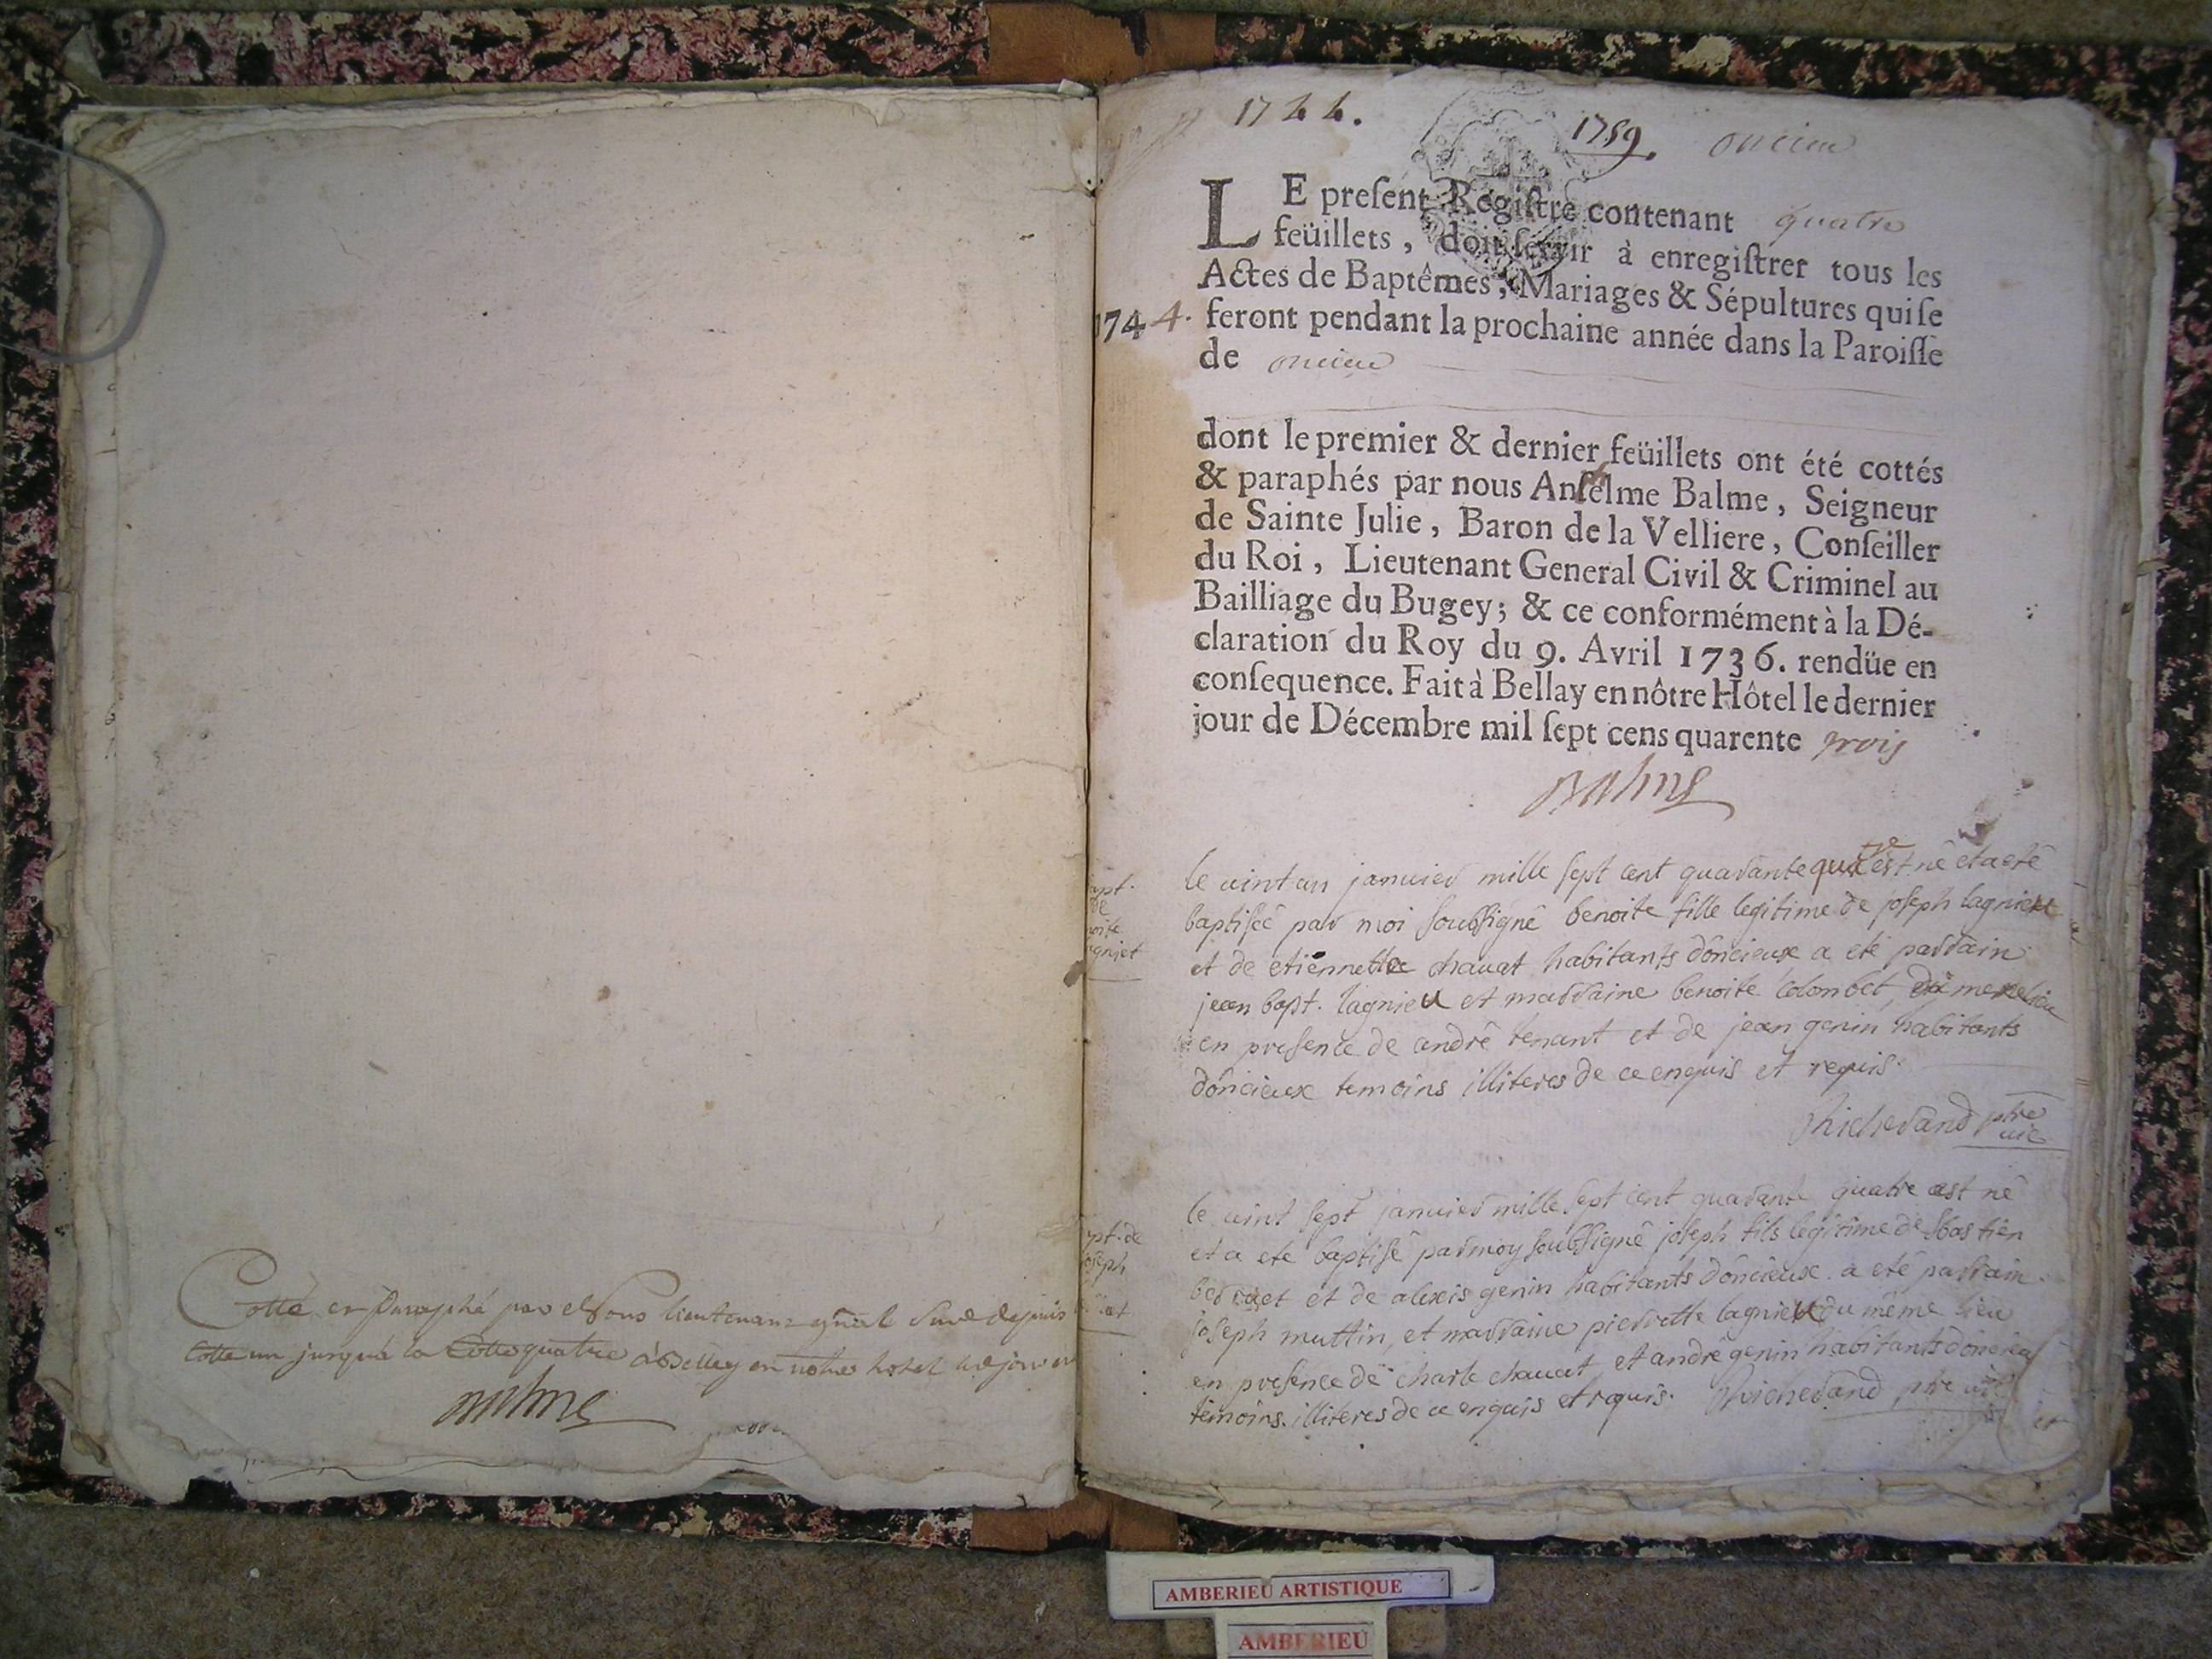 Cotté et Paraphé par Nous lieutenant gñal depuis
Cotte un jusqu'a la Cotte quatre a Belley en notre hotel
Balme
1744.
1759. oncieu
LE preſent Regiſtre contenant quatre
feüillets, doit ſervir à enregiſtrer tous les
Actes de Baptêmes, Mariages & Sépultures qui ſe
1744. feront pendant la prochaine année dans la Paroiſſe
de oncieu
dont le premier & dernier feüillets ont été cottés
& paraphés par nous Anſelme Balme, Seigneur
de Sainte Julie, Baron de la Velliere, Conſeiller
du Roi, Lieutenant General Civil & Criminel au
Bailliage du Bugey; & ce conformément à la Dé-
claration du Roy du 9. Avril 1736. rendüe en
conſequence. Fait à Bellay en nôtre Hôtel le dernier
jour de Décembre mil ſept cens quarente trois
Balme
le vint un janvier mille sept cent quarante quatre est né et a eté
baptisée par moi soussigné benoite fille legitime de joseph lagnieu
et de etiennette chavat habitants dôncieux a eté parrain
jean bapt. lagnieu et marraine benoite Colombet, du meme lieu
en presence de andré tenant et de jean genin habitants
dôncieux temoins illiteres de ce enquis et requis.
Richerand ptre vic
le vint sept janvier mille sept cent quarante quatre est né
et a eté baptisé par moy soussigné joseph fils legitime de sbastien
et de alexis genin habitants dôncieux a eté parrain
joseph muttin, et marraine pierrette lagnieu du même lieu
en presence de charle chavat et andré genin habitants dôncieu
temoins illiteres de ce enquis et requis. Richerand ptre vic
AMBERIEU ARTISTIQUE
AMBERIEU